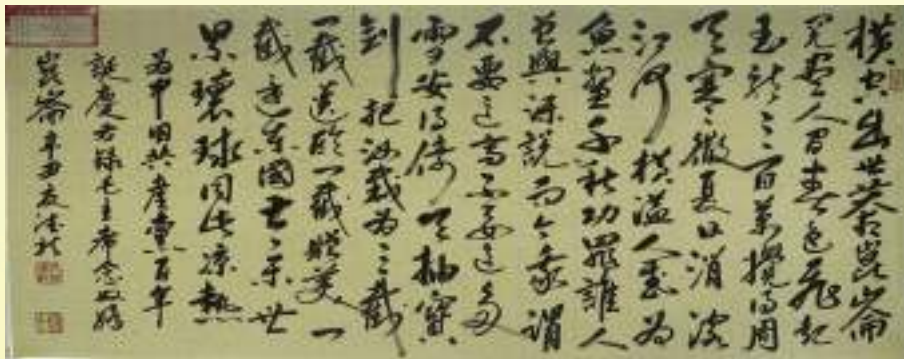 横空出世莽崑崙
阅尽人间春色飞起
玉龙三百万搅得周
天寒彻夏日消溶
江河横溢人或为
魚鳖千秋功罪誰人
曾與评説而今我謂
不要这高不要这多
雪安得倚天抽宝
剑把汝裁为三截
一截遗欧一截赠美一
截还东國太平世
界環球同此凉熱
为中国共产党百年
誕慶书録毛主席念奴娇
崑崙辛丑夏